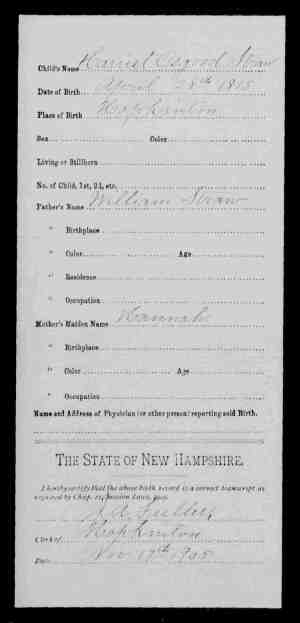 Child's Name Harriet Osgood Straw
Date of Birth April 28th 1815
Place of Birth Hopkinton
Sex Color
Living or Stillborn
No. of Child, 1st, 2d, etc.
Father's Name William Straw
" Birthplace
" Color Age
" Residence
" Occupation
Mother's Maiden Name Hannah
" Birthplace
" Color Age
" Occupation
Name and Address of Physician (or other person) reporting said Birth.
THE STATE OF NEW HAMPSHIRE.
I hereby certify that the above birth record is a correct transcript as
required by Chap. Session Laws,
Clerk of Hopkinton
Date Nov 17th 1905